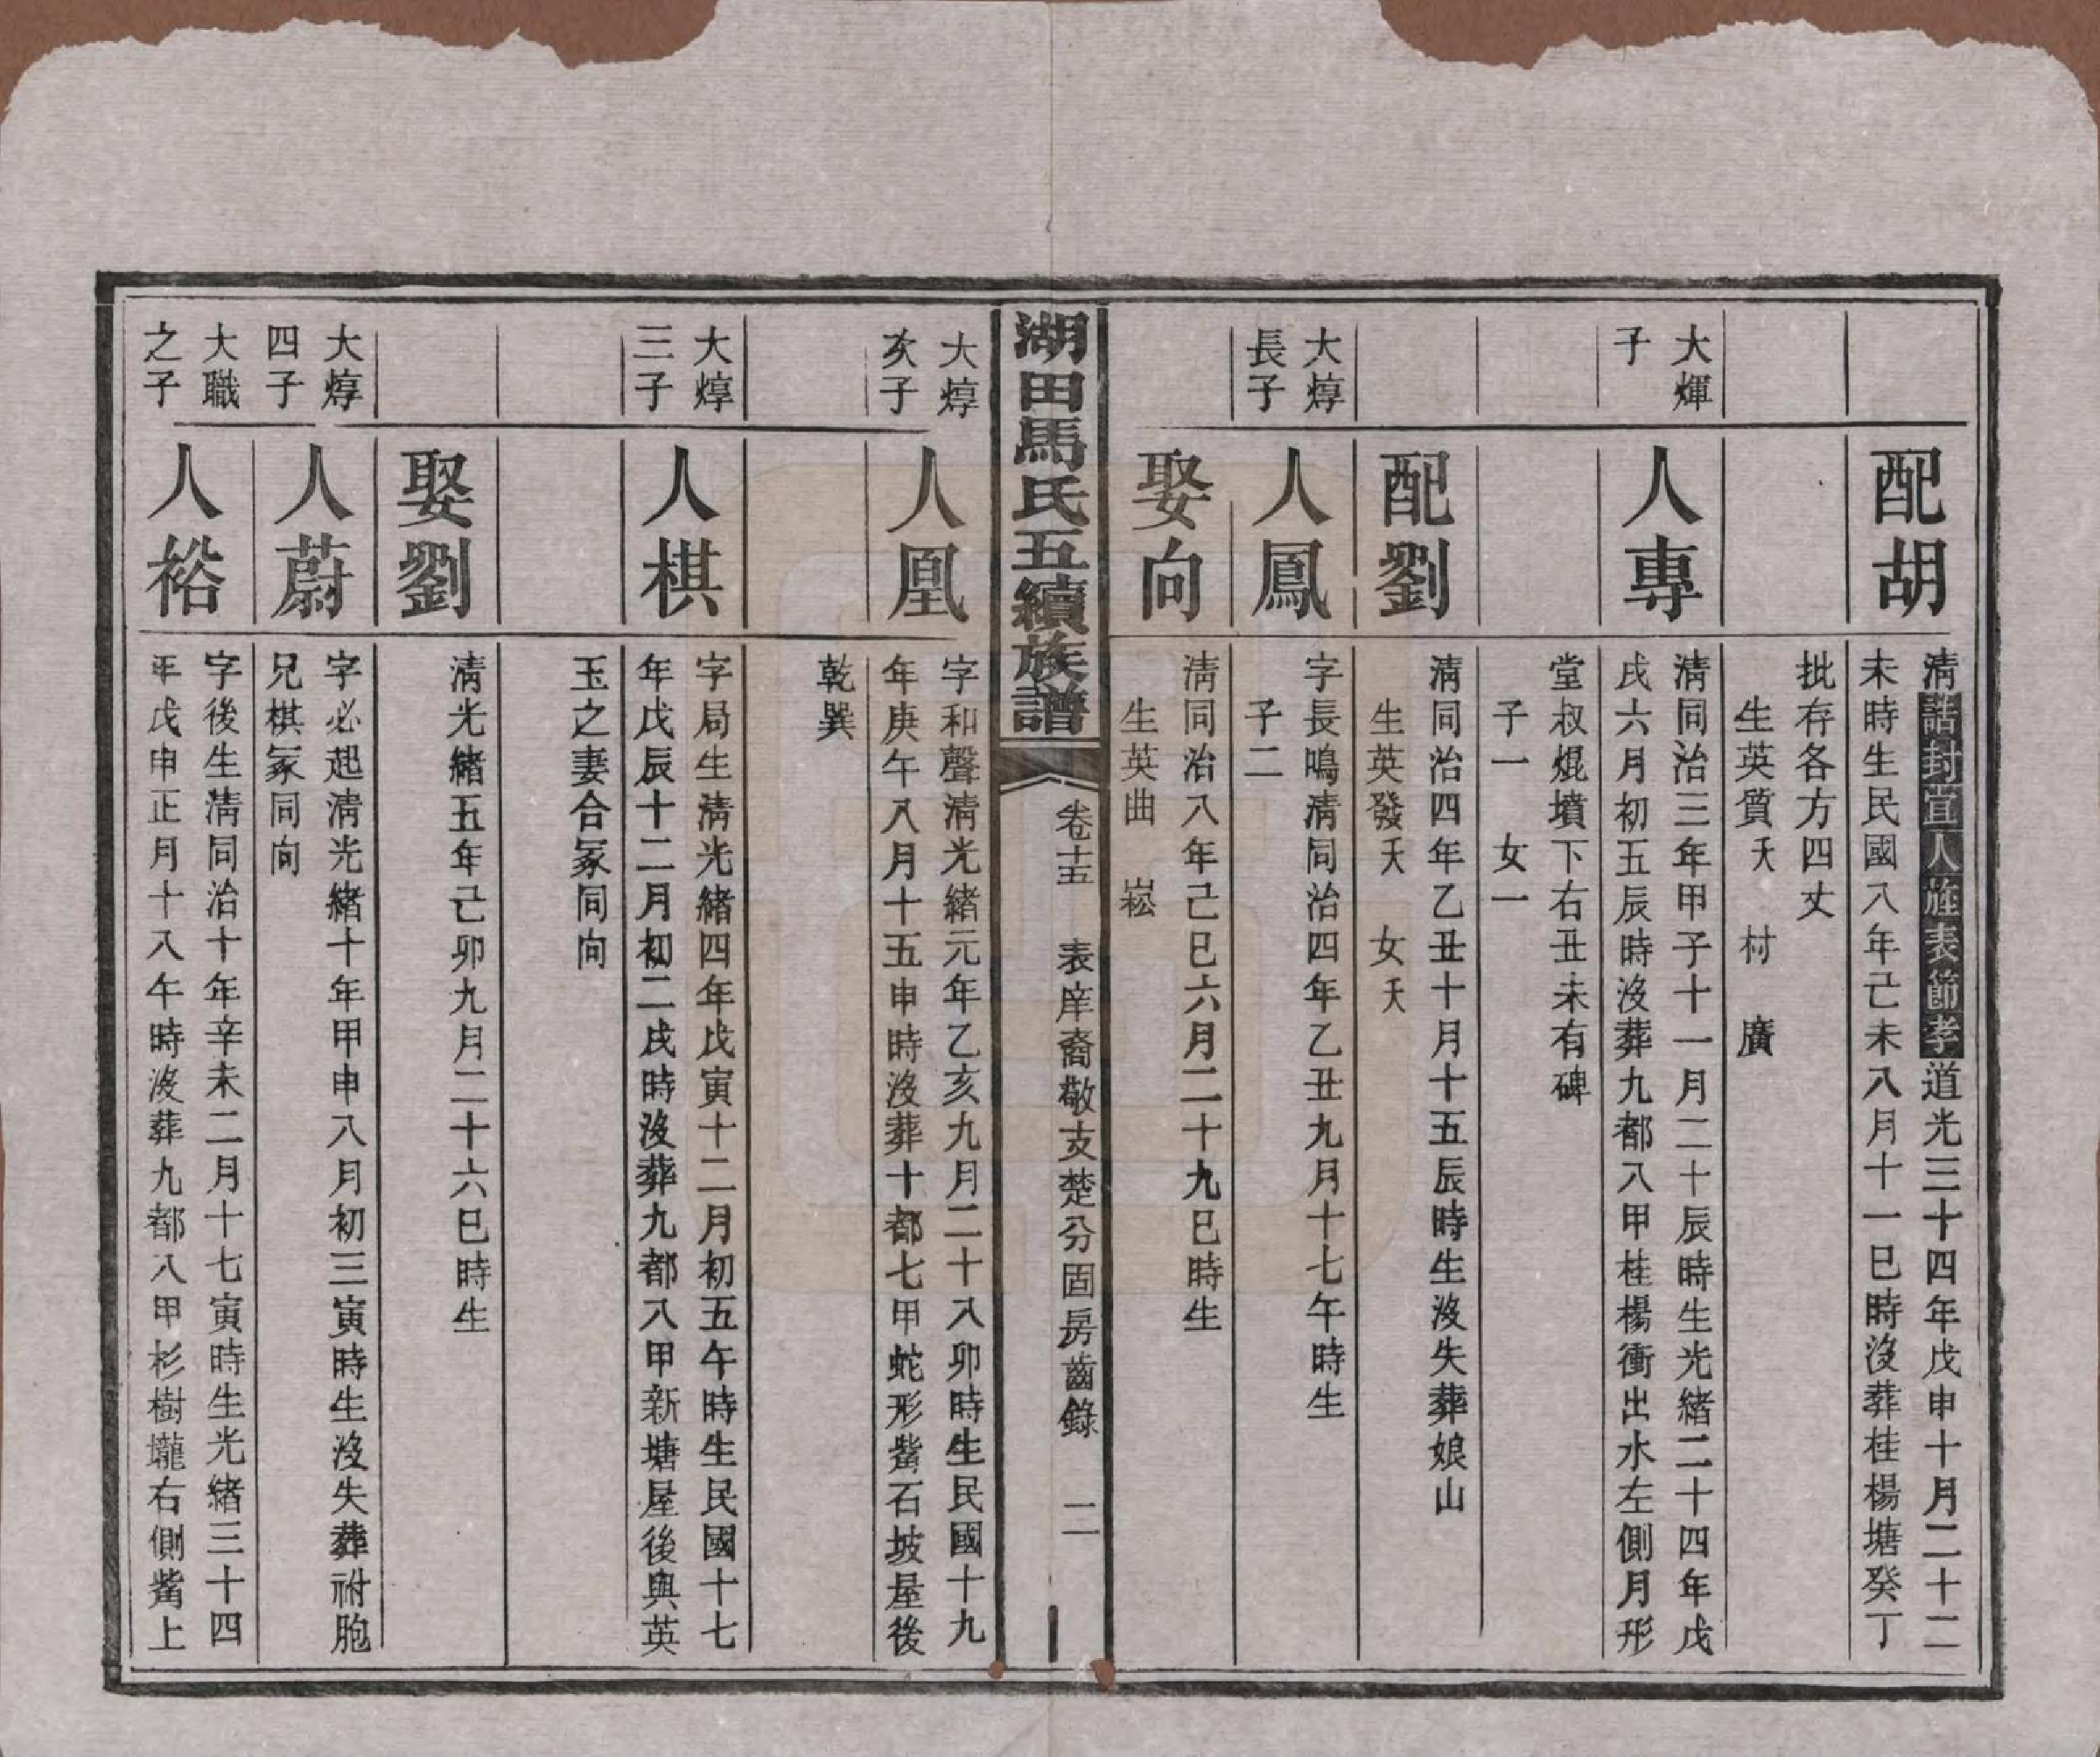 配胡
清誥封宜人旌表節孝道光二十四年戊申十月二十二
未時生民國八年己未八月十一巳時沒葬桂楊塘癸丁
批存各方四丈
生英質夭　村　廣
大煇
子
人專
清同治三年甲子十一月二十辰時生光緒二十四年戊
戌六月初五辰時沒葬九都八甲桂楊衝出水左側月形
堂叔焜墳下右丑未有碑
子一　女一
配劉
清同治四年乙丑十月十五辰時生沒失葬娘山
生英發夭　女夭
大焞
長子
人鳳
字長鳴清同治四年乙丑九月十七午時生
子二
娶向
清同治八年己巳六月二十九巳時生
生英曲　崧
湖田馬氏五續族譜
卷十五　表庠裔敬支楚分固房齒錄　二
大焞
次子
人凰
字和聲清光緒元年乙亥九月二十八卯時生民國十九
年庚午八月十五申時沒葬十都七甲蛇形觜石坡屋後
乾巽
大焞
三子
人棋
字局生清光緒四年戊寅十二月初五午時生民國十七
年戊辰十二月初二戌時沒葬九都八甲新塘屋後與英
玉之妻合冢同向
娶劉
清光緒五年己卯九月二十六巳時生
大焞
四子
人蔚
字必起清光緒十年甲申八月初三寅時生沒失葬祔胞
兄棋冢同向
大職
之子
人裕
字後生清同治十年辛未二月十七寅時生光緒三十四
年戊申正月十八午時沒葬九都八甲杉樹壠右側觜上